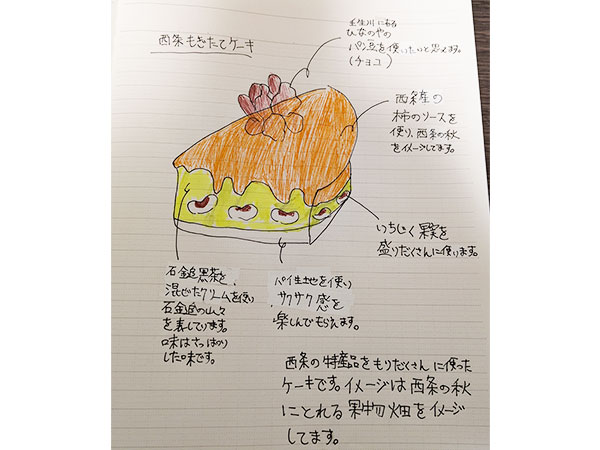 西条もぎたてケーキ
壬生川にある
ひなのやの
パン豆を使いたいと思えます。
(チョコ)
西条産の
柿のソースを
使い、西条の秋
をイメージしてます。
いちじく果実を
盛りだくさんに使います。
石鎚黒茶を
混ぜたクリームを使い
石鎚の山々
を表しています。
味はさっぱり
した味です。
パイ生地を使い
サクサク感を
楽しんでもらえます。
西条の特産品をもりだくさんに使った
ケーキです。イメージは西条の秋
にとれる果物畑をイメージ
してます。